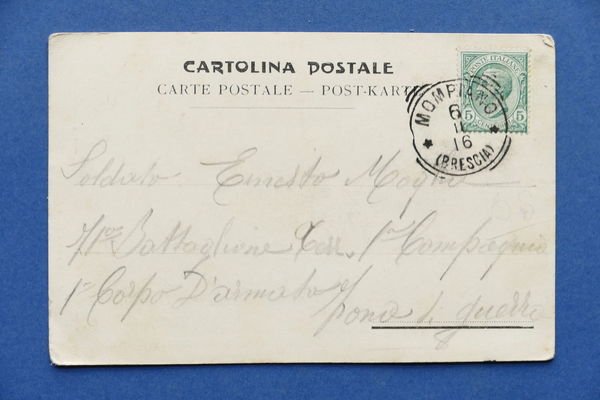 CARTOLINA POSTALE
CARTE POSTALE — POST-KART
POSTE ITALIANE
5 5
MOMPIANO
6
II
16
(BRESCIA)
Soldato Ernesto
Battaglione Terr. 1ª Compagnia
1º Corpo D'armata
zona di guerra